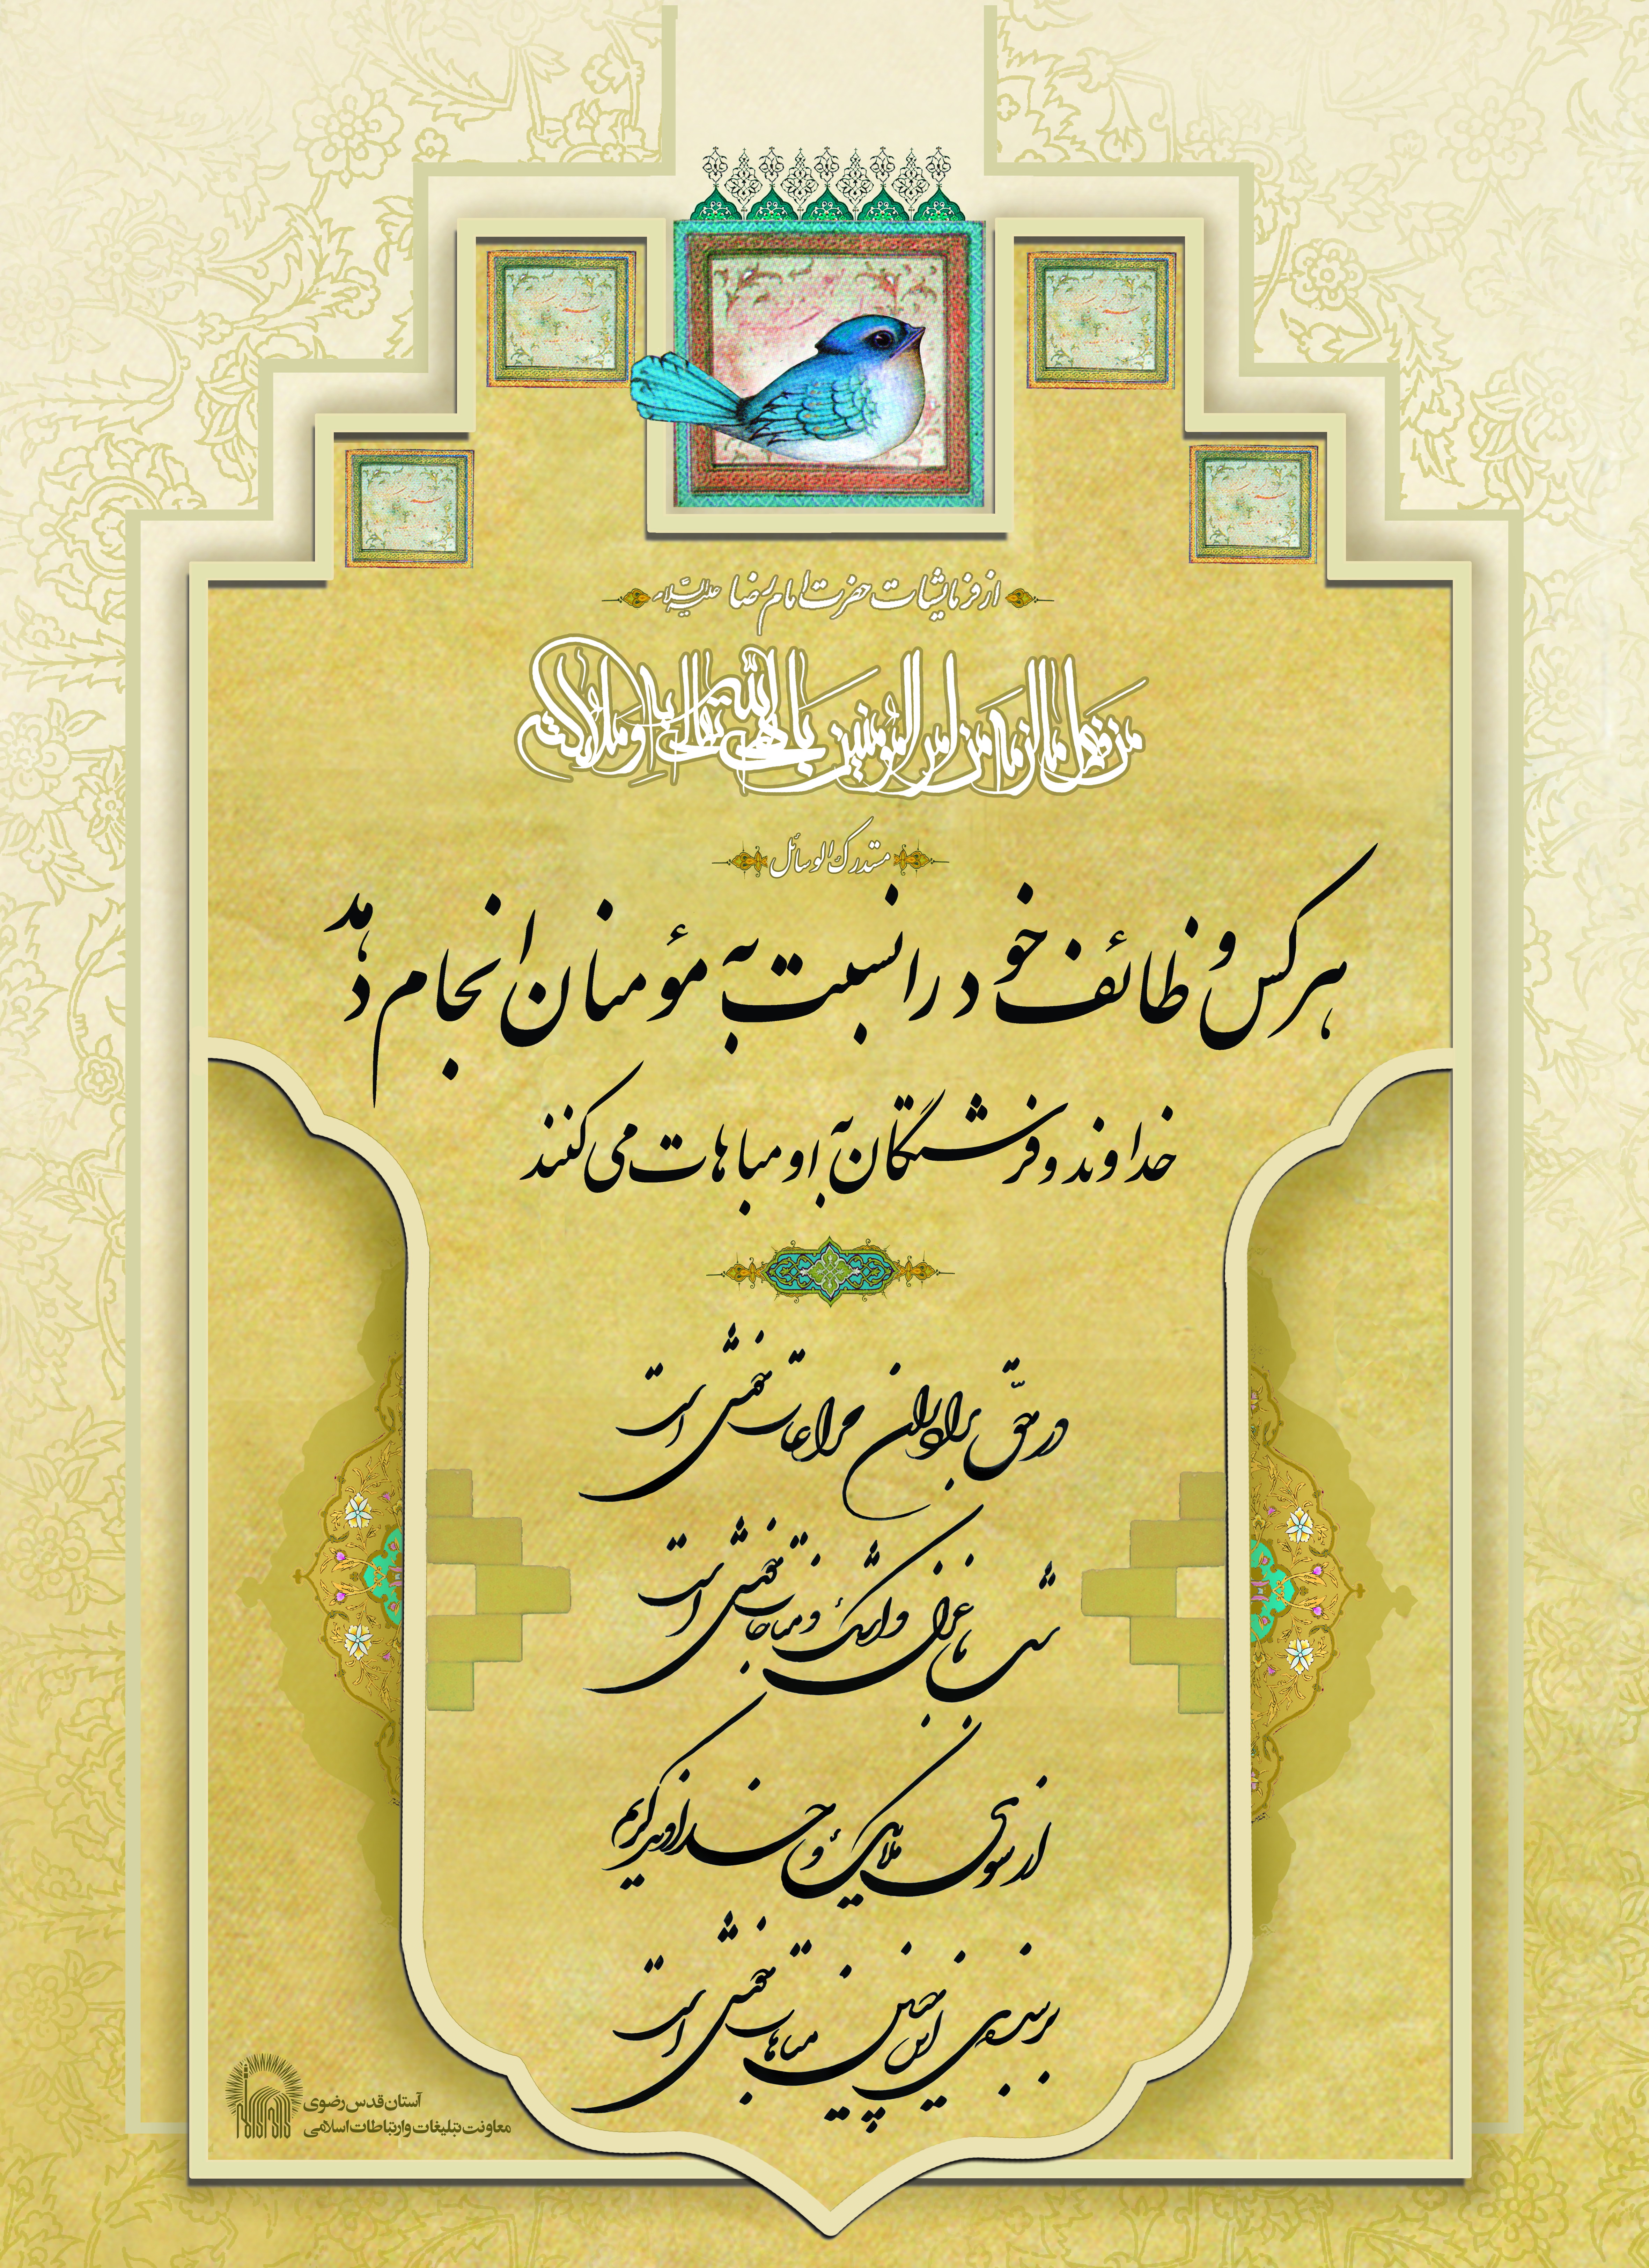 از فرمایشات حضرت امام رضا علیه‌السلام
من فعل ما لزمه من امر المؤمنین باهی الله تعالی به و ملائکته
مستدرک الوسائل
هر کس وظائف خود را نسبت به مؤمنان انجام دهد
خداوند و فرشتگان به او مباهات می‌کنند
در حقّ برادران مراعات خوش است
شب تا غزل و اشک و مناجات خوش است
از سوی ملایک و خداوند کریم
بر بنده‌ی این چنین مباهات خوش است
آستان قدس رضوی
معاونت تبلیغات و ارتباطات اسلامی